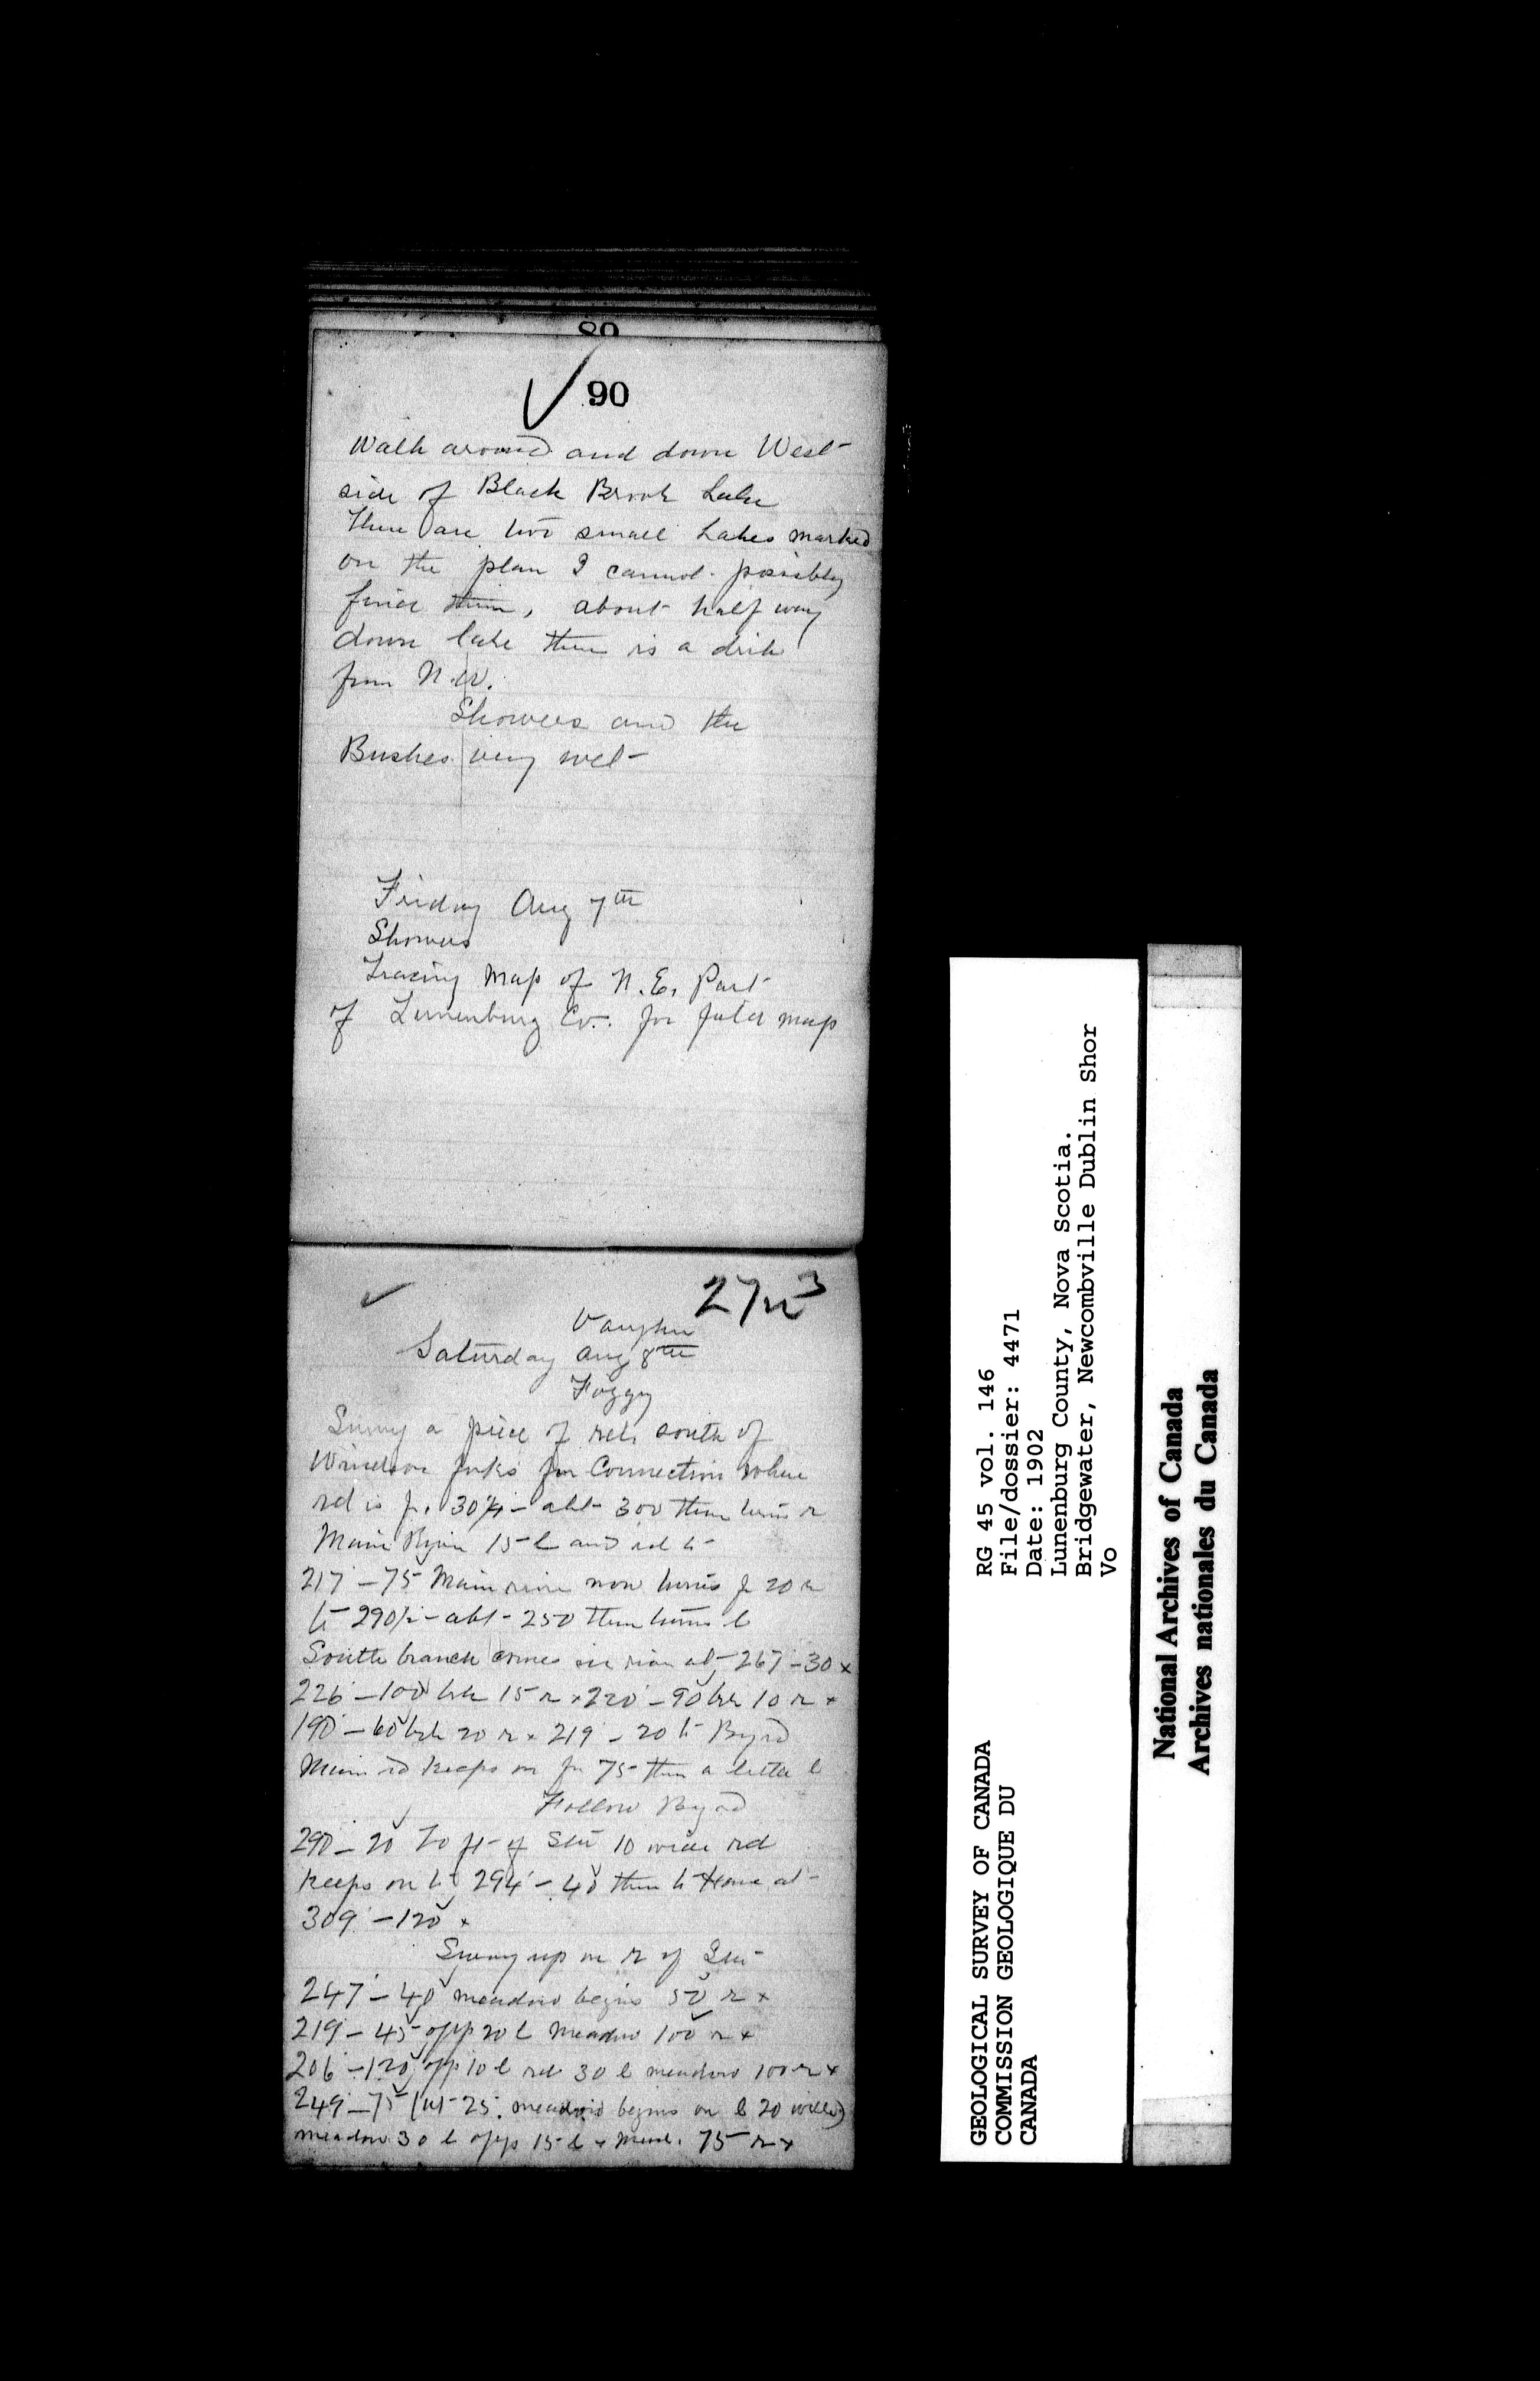 90
Walk around and down West
side of Black Brook Lake
There are two small Lakes marked
on the plan I cannot possibly
find them, about half way
down lake there is a
from N.W.
Showers and the
Bushes very wet
Friday Aug 7th
Showers
Tracing Map of N.E. Part
of Lunenburg Co. for field map
27
Vaughn
Saturday Aug 8th
Foggy
Survey a piece of rd south of
Windsor forks for Connection where
rd is f. 30 - abt 300 then turns r
Main 15 l and rd to
217 - 75 Main now turns f 20 r
to 290 - abt 250 then turns l
South branch comes in at 267 - 30 x
226 - 100 brk 15 r x 220 - 90 brk 10 r x
190 - 60 brk 20 r x 219 - 20 to Byrd
Main rd keeps on for 75 then a little l
Follow Byrd
290 - 20 To ft of 10 wide rd
keeps on to 294 - 40 then to at
309 - 120 x
Survey up on r of
247 - 40 meadow begins 50 r x
219 - 45 opp 20 l meadow 100 r x
206 - 120 opp 10 l rd 30 l meadow 100 r x
249 - 75 (at 25 meadow begins on l 20 wide)
meadow 30 l opp 15 l x mead. 75 r x
RG 45 vol. 146
File/dossier: 4471
Date: 1902
Lunenburg County, Nova Scotia.
Bridgewater, Newcombville Dublin Shor
Vo
GEOLOGICAL SURVEY OF CANADA
COMMISSION GEOLOGIQUE DU
CANADA
National Archives of Canada
Archives nationales du Canada